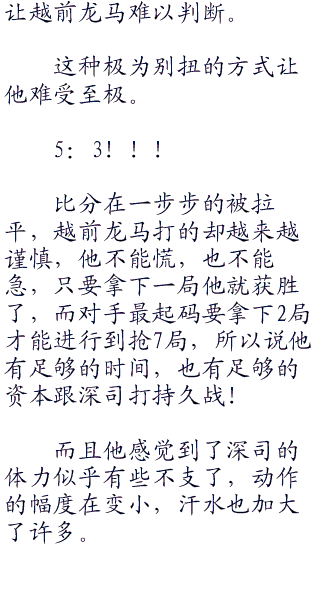 让越前龙马难以判断。
这种极为别扭的方式让
他难受至极。
5：3！！！
比分在一步步的被拉
平，越前龙马打的却越来越
谨慎，他不能慌，也不能
急，只要拿下一局他就获胜
了，而对手最起码要拿下2局
才能进行到抢7局，所以说他
有足够的时间，也有足够的
资本跟深司打持久战！
而且他感觉到了深司的
体力似乎有些不支了，动作
的幅度在变小，汗水也加大
了许多。